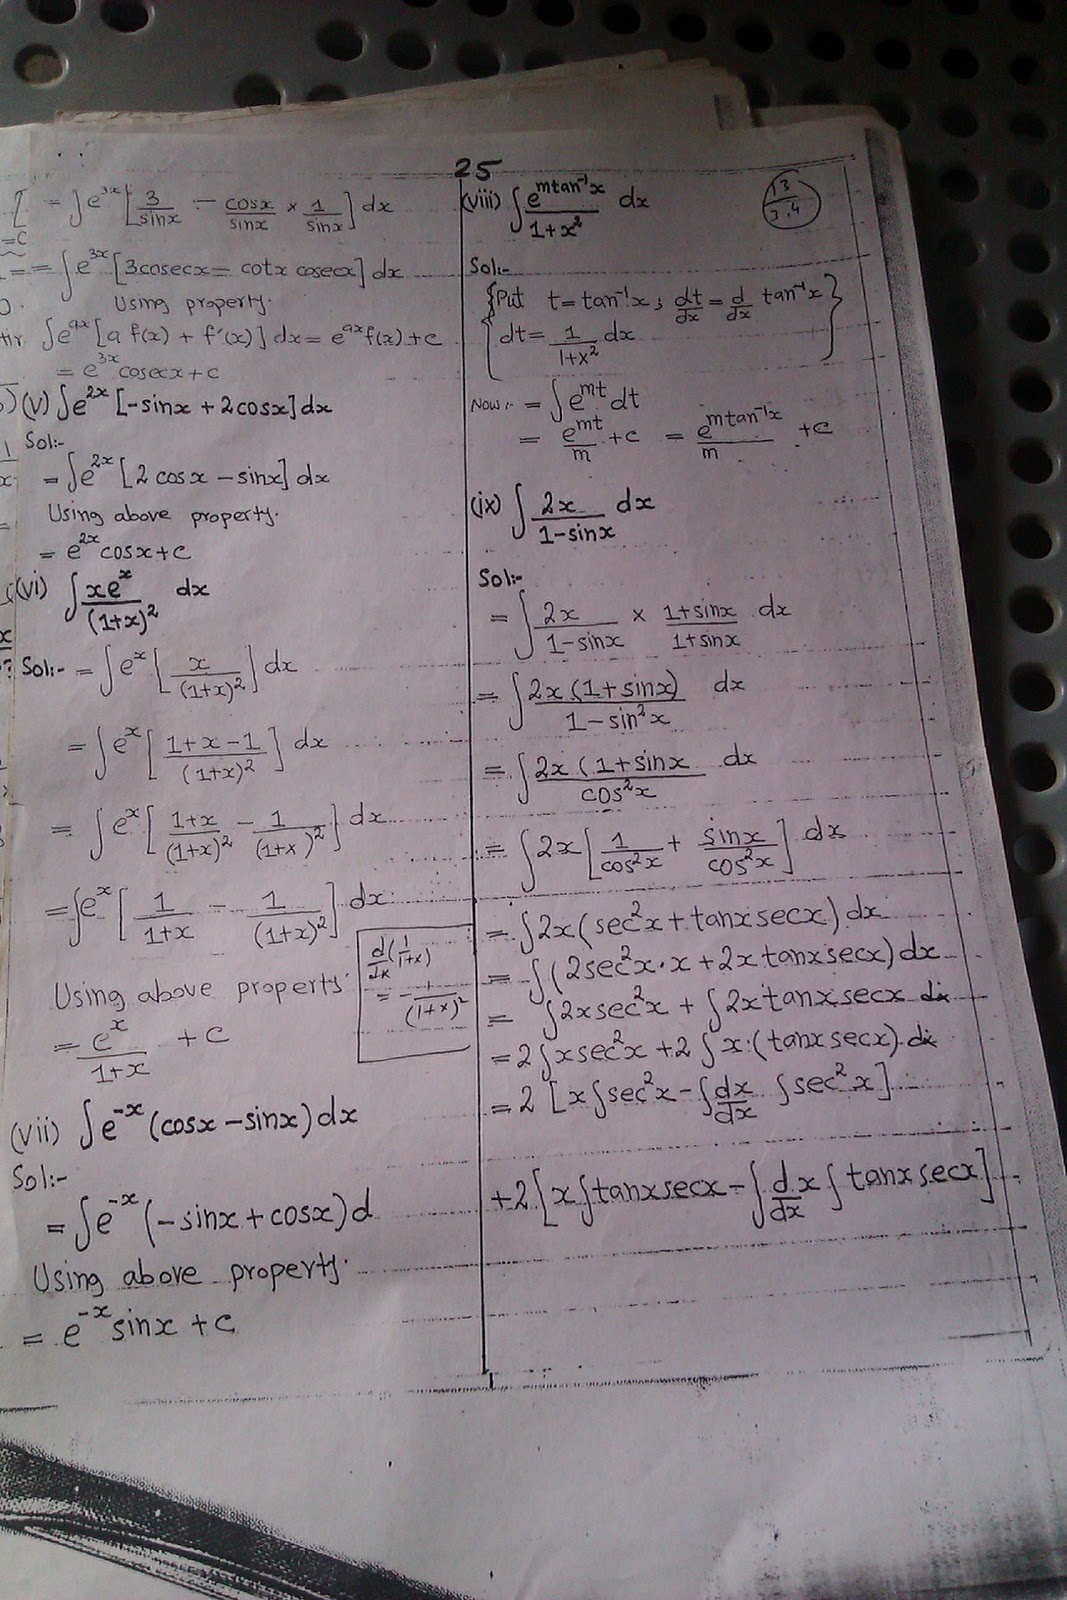 25
= ∫e^{3x} [3/sinx - cosx/sinx × 1/sinx] dx
=C
= = ∫e^{3x} [3cosecx = cotx cosecx] dx
Using property.
∫e^{ax} [a f(x) + f'(x)] dx = e^{ax} f(x) + c
= e^{3x} cosecx + c
(v) ∫e^{2x} [-sinx + 2cosx] dx
Sol:-
= ∫e^{2x} [2 cosx - sinx] dx
Using above property.
= e^{2x} cosx + c
(vi) ∫ xe^x/(1+x)^2 dx
Sol:- = ∫e^x [x/(1+x)^2] dx
= ∫e^x [(1+x-1)/(1+x)^2] dx
= ∫e^x [(1+x)/(1+x)^2 - 1/(1+x)^2] dx
= ∫e^x [1/(1+x) - 1/(1+x)^2] dx
d/dx (1/1+x)
= -1/(1+x)^2
Using above property.
= e^x/(1+x) + c
(vii) ∫e^{-x} (cosx - sinx) dx
Sol:-
= ∫e^{-x} (-sinx + cosx) d
Using above property.
= e^{-x} sinx + c
(viii) ∫ e^{mtan^{-1}x}/(1+x^2) dx
13
3.4
Sol:-
{Put t = tan^{-1}x ; dt/dx = d/dx tan^{-1}x}
{dt = 1/(1+x^2) dx
Now:- = ∫e^{mt} dt
= e^{mt}/m + c = e^{mtan^{-1}x}/m + c
(ix) ∫ 2x/(1-sinx) dx
Sol:-
= ∫ 2x/(1-sinx) × (1+sinx)/(1+sinx) dx
= ∫ 2x(1+sinx)/(1-sin^2x) dx
= ∫ 2x(1+sinx/cos^2x dx
= ∫2x [1/cos^2x + sinx/cos^2x] dx
= ∫2x (sec^2x + tanx secx) dx
= ∫(2sec^2x·x + 2x tanx secx) dx
= ∫2x sec^2x + ∫2x tanx secx dx
= 2∫x sec^2x + 2∫x·(tanx secx).dx
= 2 [x∫sec^2x - ∫dx/dx ∫sec^2x]
+2 [x∫tanx secx - ∫d/dx x ∫tanx secx]